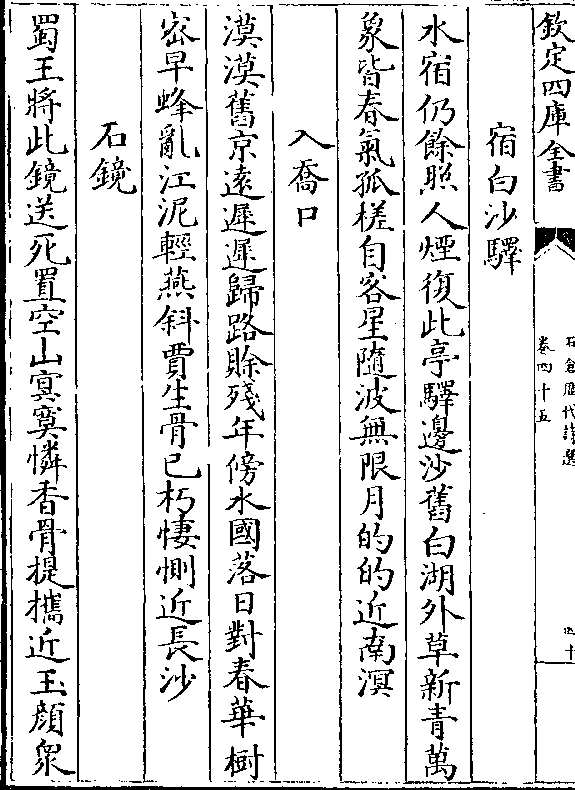 欽定四庫全書
石倉歷代詩選
卷四十五
四十
宿白沙驛
水宿仍餘照人煙復此亭驛邊沙舊白湖外草新青萬
象皆春氣孤槎自客星隨波無限月的的近南溟
入喬口
漠漠舊京遠遲遲歸路賒殘年傍水國落日對春華樹
宻早蜂亂江泥輕燕斜賈生骨已朽悽惻近長沙
石鏡
蜀王將此鏡送死置空山㝠寞憐香骨提攜近玉顔衆